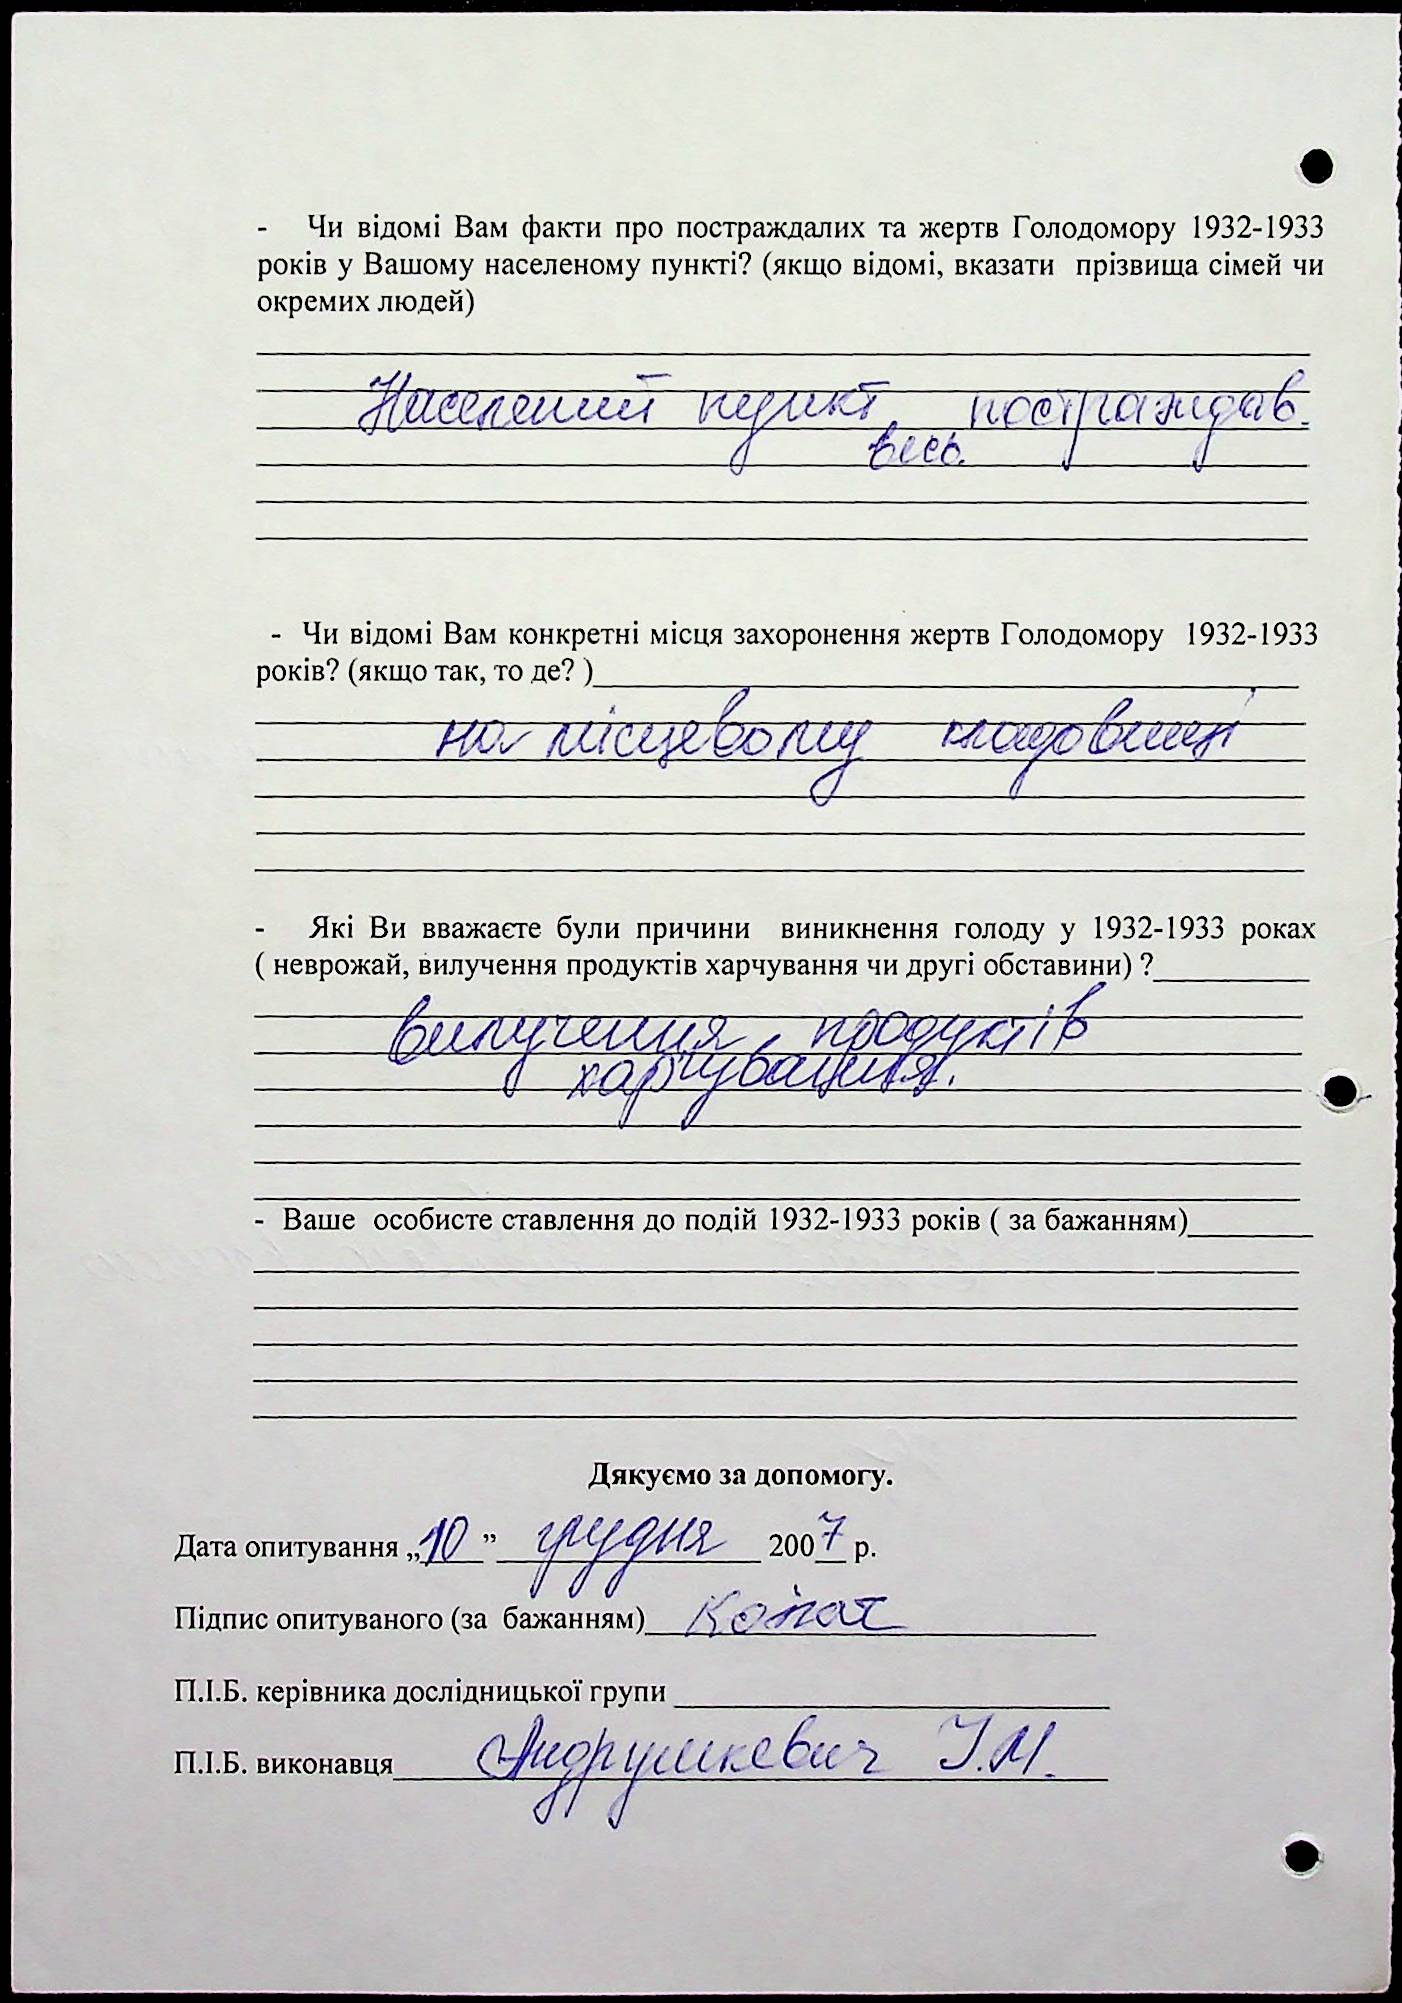 - Чи відомі Вам факти про постраждалих та жертв Голодомору 1932-1933
років у Вашому населеному пункті? (якщо відомі, вказати прізвища сімей чи
окремих людей)
Населений пункт постраждав.
весь.
- Чи відомі Вам конкретні місця захоронення жертв Голодомору 1932-1933
років? (якщо так, то де? )
на місцевому кладовищі
- Які Ви вважаєте були причини виникнення голоду у 1932-1933 роках
( неврожай, вилучення продуктів харчування чи другі обставини) ?
вилучення продуктів
харчування.
- Ваше особисте ставлення до подій 1932-1933 років ( за бажанням)
Дякуємо за допомогу.
Дата опитування „10” грудня 2007 р.
Підпис опитуваного (за бажанням)
П.І.Б. керівника дослідницької групи
П.І.Б. виконавця Андрушкевич І.М.